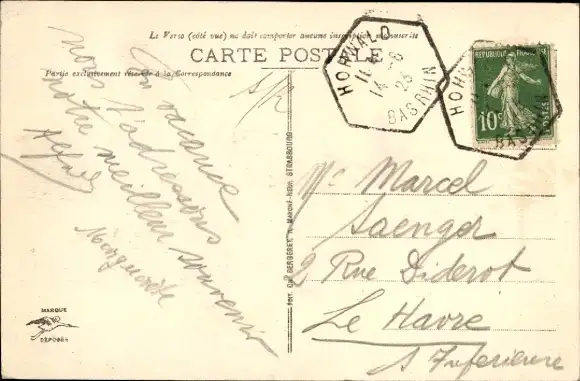 Le Verso (côté vue) ne doit comporter aucune inscription manuscrite
CARTE POSTALE
Partie exclusivement réservée à la Correspondance
En vacance
nous t'adressons
notre meilleur souvenir
Marguerite
HOHWALD
14 - 8
25
BAS RHIN
HOHW
BAS RHIN
RÉPUBLIQUE FRANÇAISE
10c
POSTES
Mr Marcel
Saenger
2 Rue Diderot
Le Havre
S Inferieure
EDIT. CH. BERGERET, 8 MARCHÉ-NEUF, STRASBOURG
MARQUE
DÉPOSÉE